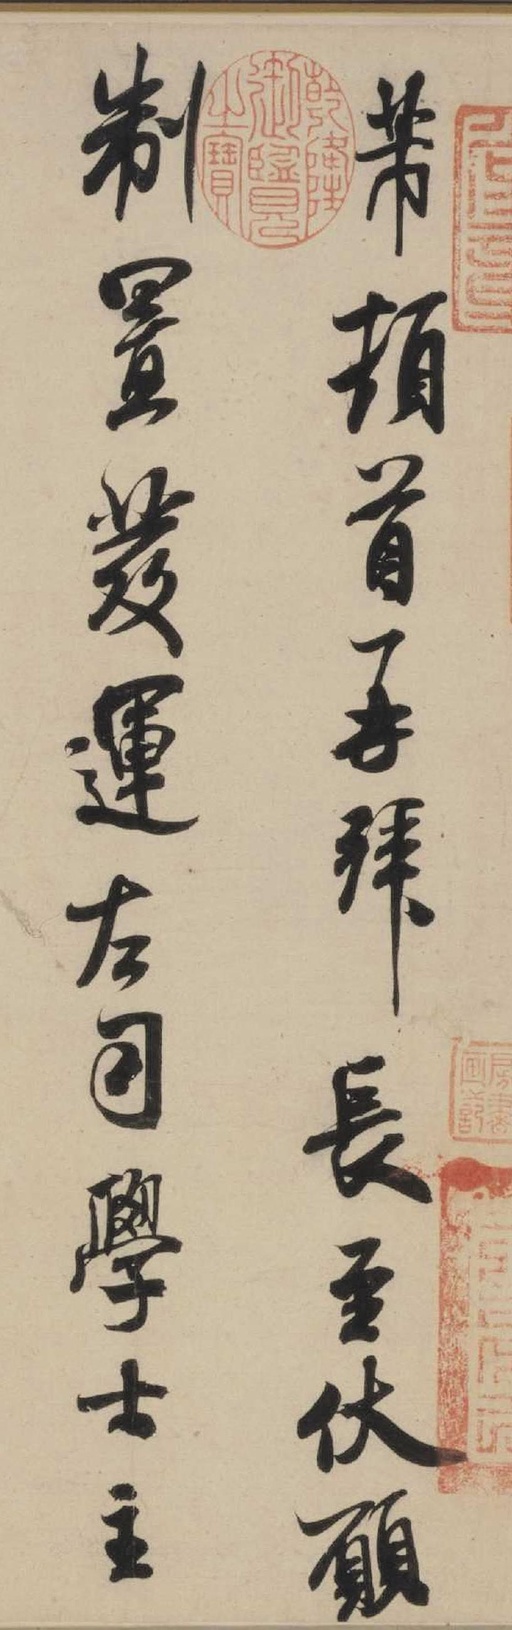 芾頓首再拜長至伏願
乾隆御覽之寶
制置發運左司學士主